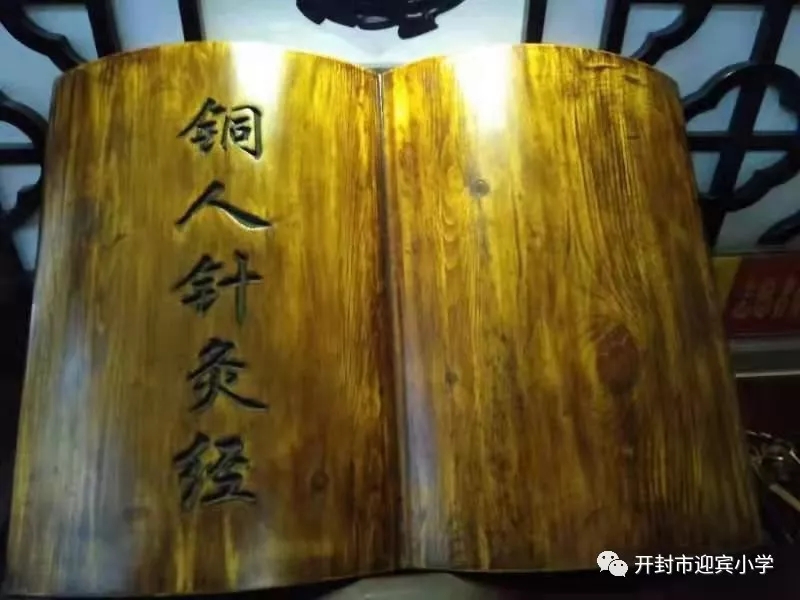 铜人针灸经
开封市迎宾小学